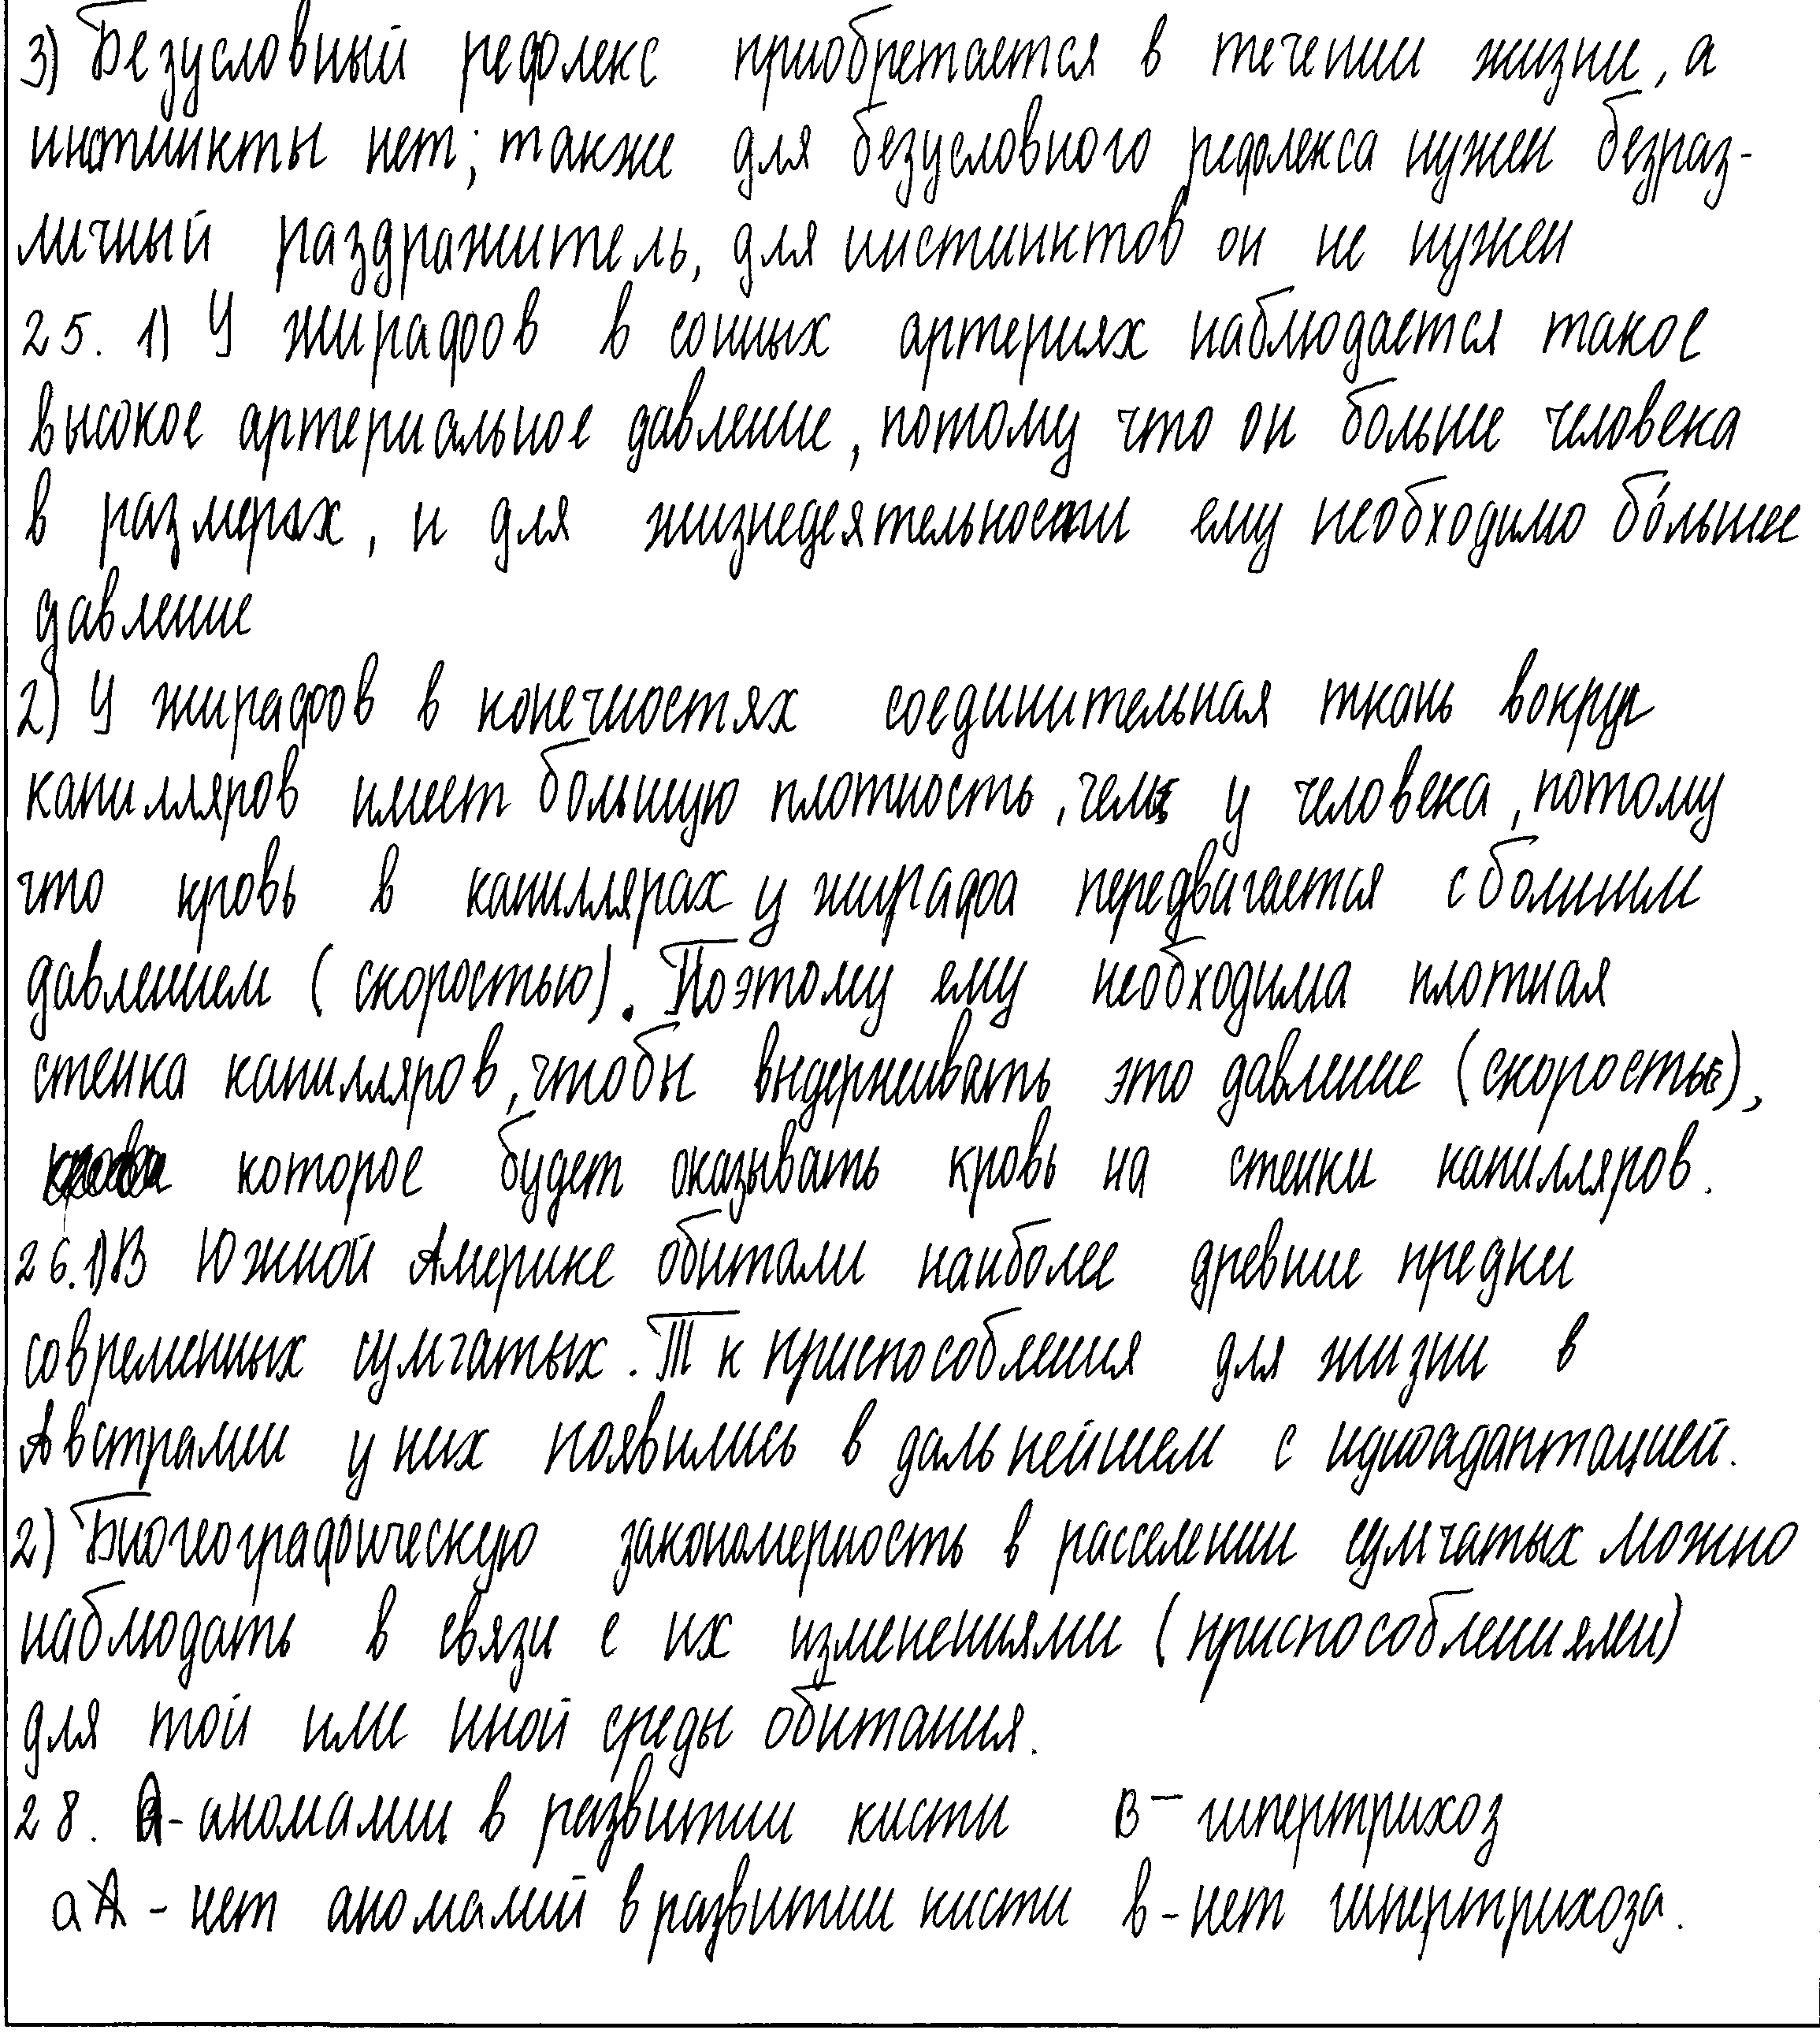 3) Безусловный рефлекс приобретается в течении жизни, а
инстинкты нет; также для безусловного рефлекса нужен безраз-
личный раздражитель, для инстинктов он не нужен
25. 1) У жирафов в сонных артериях наблюдается такое
высокое артериальное давление, потому что он больше человека
в размерах, и для жизнедеятельности ему необходимо бо́льшее
давление
2) У жирафов в конечностях соединительная ткань вокруг
капилляров имеет большую плотность, чем у человека, потому
что кровь в капиллярах у жирафа передвигается с большим
давлением (скоростью). Поэтому ему необходима плотная
стенка капилляров, чтобы выдерживать это давление (скорость),
которое будет оказывать кровь на стенки капилляров.
26. 1) В Южной Америке обитали наиболее древние предки
современных сумчатых. Т к приспособления для жизни в
Австралии у них появились в дальнейшем с идиоадаптацией.
2) Биогеографическую закономерность в расселении сумчатых можно
наблюдать в связи с их изменениями (приспособлениями)
для той или иной среды обитания.
28. А - аномалии в развитии кисти В - гипертрихоз
а - нет аномалий в развитии кисти в - нет гипертрихоза.